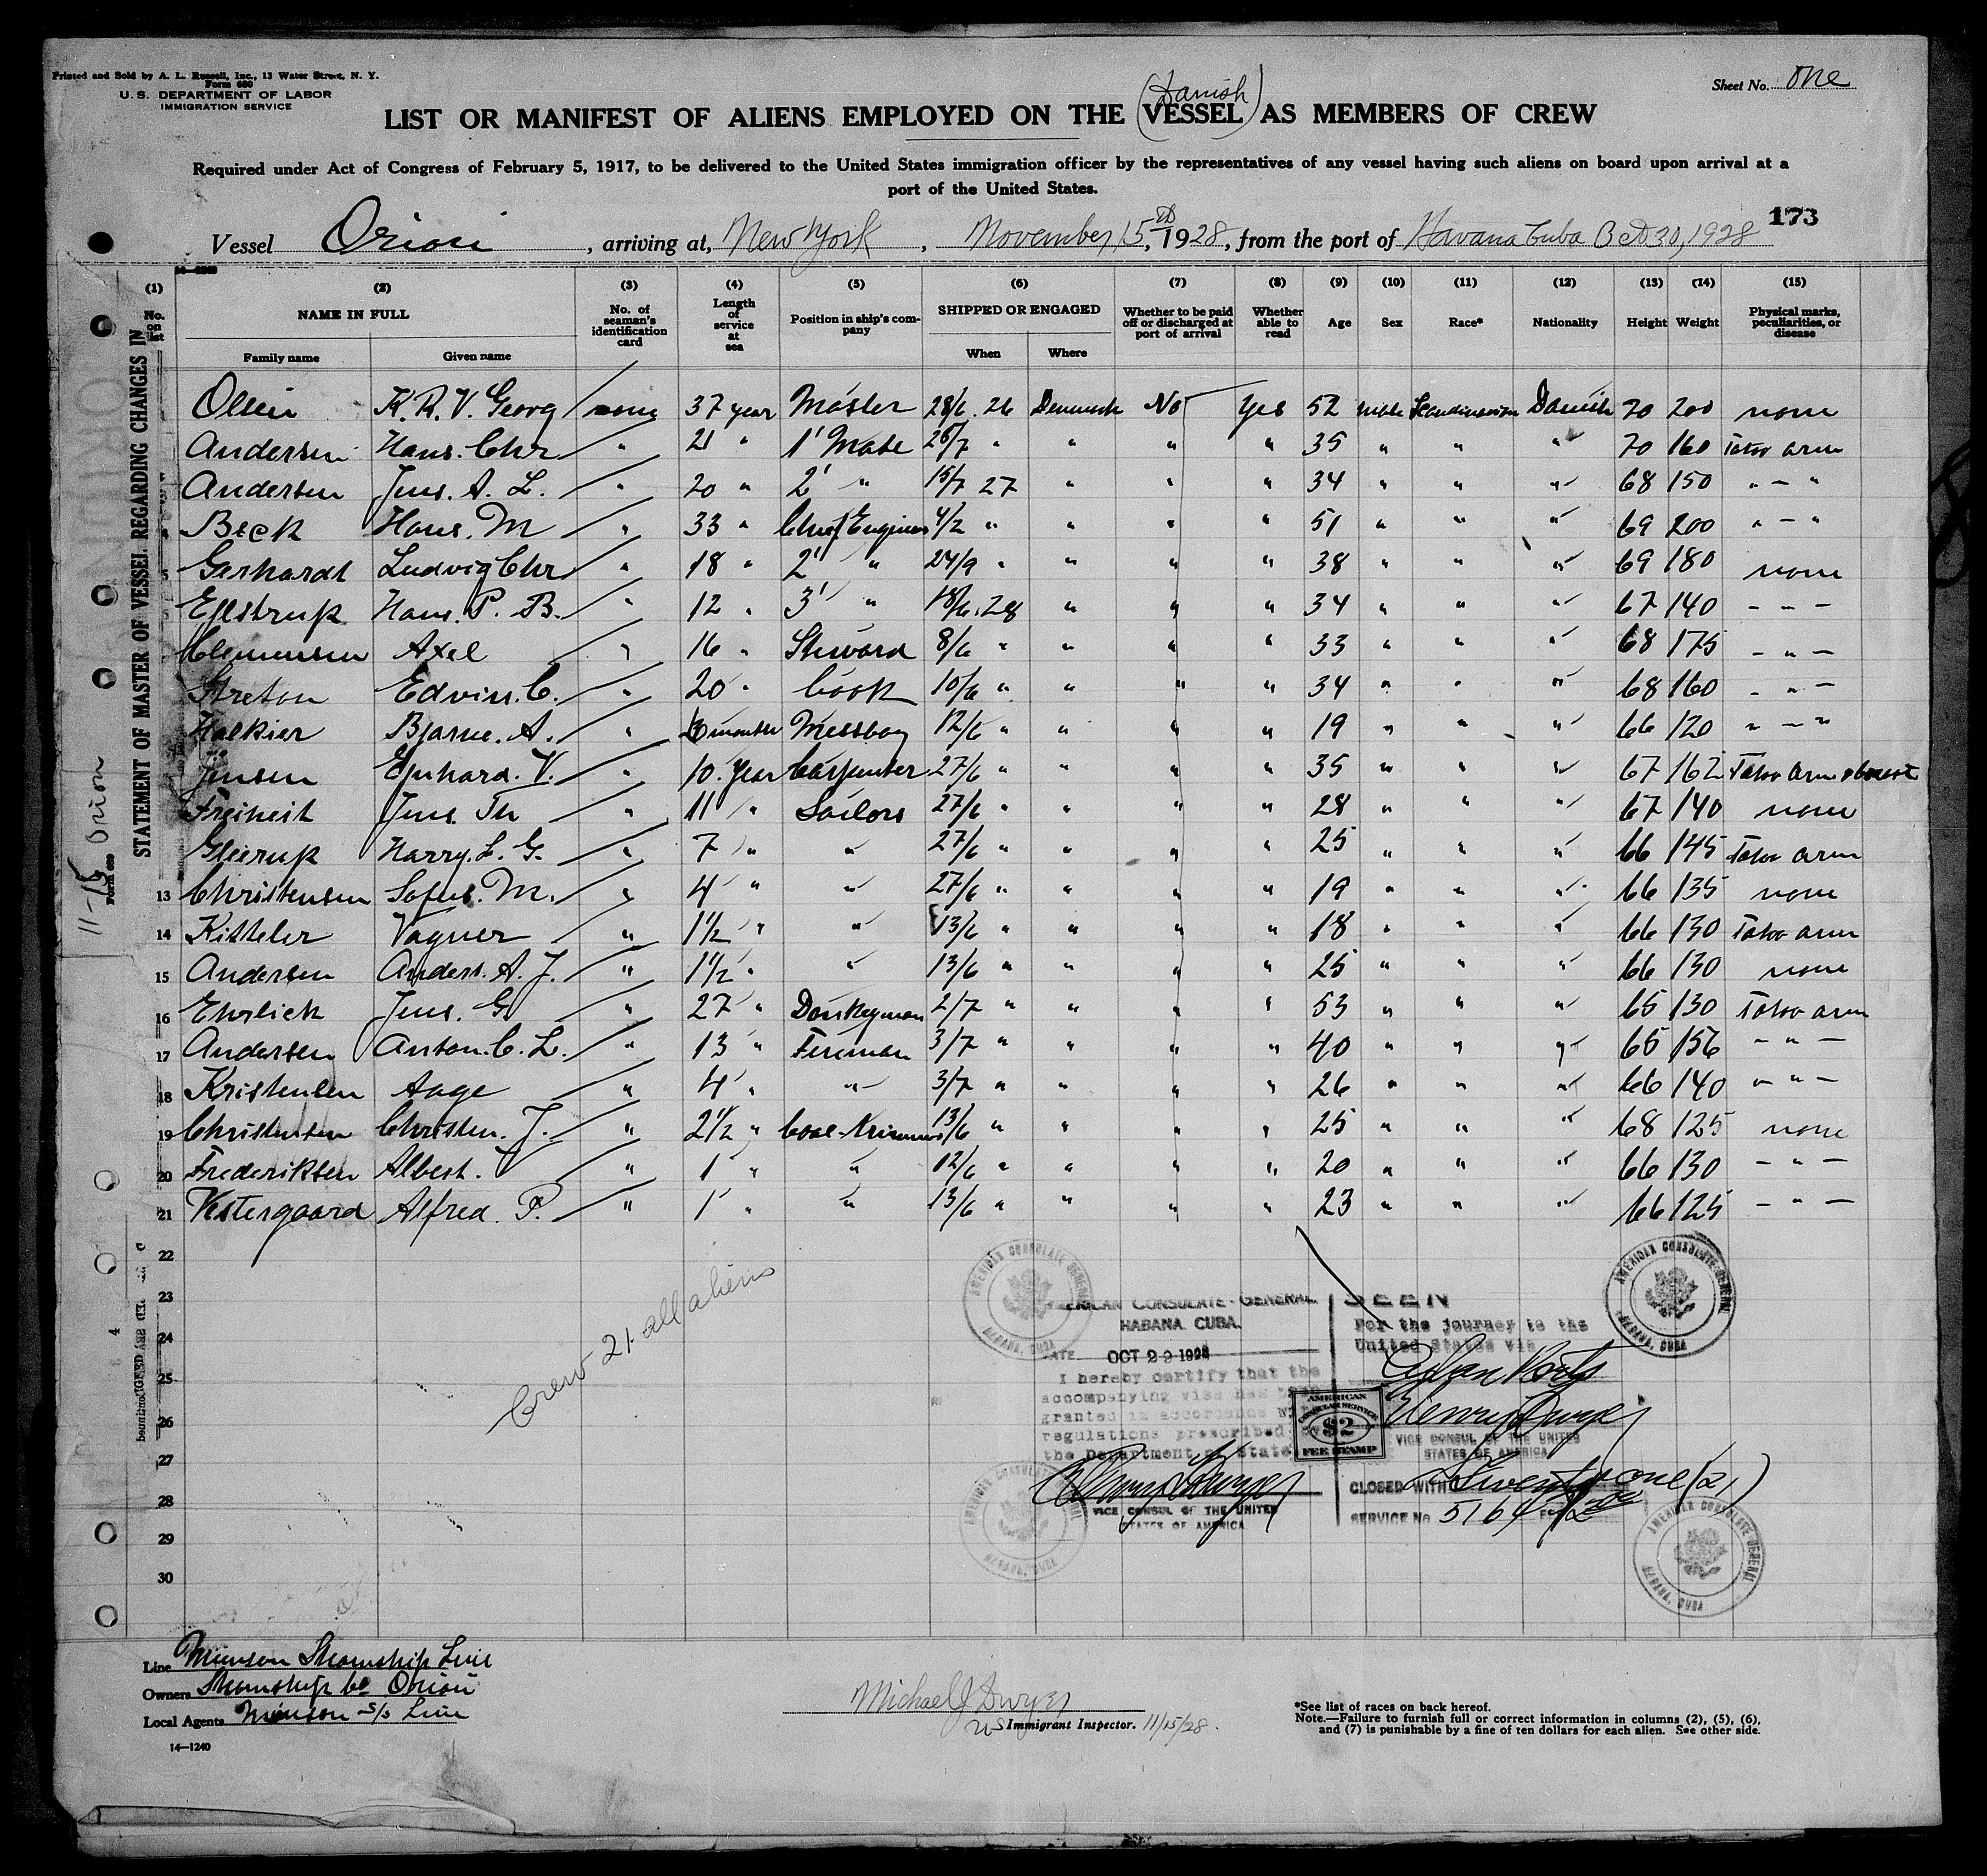 Printed and Sold by A. L. Russell, Inc., 13 Water Street, N. Y.
Form 680
U. S. DEPARTMENT OF LABOR
IMMIGRATION SERVICE
Sheet No. One
(Danish)
LIST OR MANIFEST OF ALIENS EMPLOYED ON THE VESSEL AS MEMBERS OF CREW
Required under Act of Congress of February 5, 1917, to be delivered to the United States immigration officer by the representatives of any vessel having such aliens on board upon arrival at a
port of the United States.
173
Vessel Orion, arriving at, New York, November 15th, 1928, from the port of Havana Cuba Oct 30, 1928
(1) No. on list
(2) NAME IN FULL Family name Given name
(3) No. of seaman's identification card
(4) Length of service at sea
(5) Position in ship's company
(6) SHIPPED OR ENGAGED When Where
(7) Whether to be paid off or discharged at port of arrival
(8) Whether able to read
(9) Age
(10) Sex
(11) Race*
(12) Nationality
(13) Height
(14) Weight
(15) Physical marks, peculiarities, or disease
Olsen K. R. V. Georg none 37 year Master 28/6 26 Denmark No Yes 52 male Scandinavian Danish 70 200 none
Andersen Hans. Chr " 21 " 1' Mate 28/7 " " " " 35 " " " 70 160 Tatoo arm
Andersen Jens. A. L. " 20 " 2' " 15/7 27 " " " 34 " " " 68 150 " - "
Beck Hans. M " 33 " Chief Engineer 4/2 " " " " 51 " " " 69 200 " - "
5 Gerhardt Ludvig Chr " 18 " 2' " 24/9 " " " " 38 " " " 69 180 none
Ellstrup Hans. P. B. " 12 " 3' " 18/6 28 " " " 34 " " " 67 140 - " -
Clemensen Axel " 16 " Steward 8/6 " " " " 33 " " " 68 175 - " -
Streton Edvin. C. " 20 " Cook 10/6 " " " " 34 " " " 68 160 - " -
Halkier Bjarne. A. " months Messboy 12/6 " " " " 19 " " " 66 120 " - "
Jensen V. " 10 year Carpenter 27/6 " " " " 35 " " " 67 162 Tatoo arm breast
Freiheit Jens. Th " 11 " Sailors 27/6 " " " " 28 " " " 67 140 none
Gleerup Harry. L. G. " 7 " " 27/6 " " " " 25 " " " 66 145 Tatoo arm
13 Christensen Sofus. M. " 4 " " 27/6 " " " " 19 " " " 66 135 none
14 Kitteler Vagner " 1 1/2 " " 13/6 " " " " 18 " " " 66 130 Tatoo arm
15 Andersen Anders. A. J. " 1 1/2 " " 13/6 " " " " 25 " " " 66 130 none
16 Ehrlich Jens. G " 27 " Donkeyman 2/7 " " " " 53 " " " 65 130 Tatoo arm
17 Andersen Anton. C. L. " 13 " Fireman 3/7 " " " " 40 " " " 65 156 - " -
18 Kristensen Aage " 4 " " 3/7 " " " " 26 " " " 66 140 - " -
19 Christensen Christen. J. " 2 1/2 " Coal-trimmers 13/6 " " " " 25 " " " 68 125 none
20 Frederiksen Albert. " 1 " " 12/6 " " " " 20 " " " 66 130 - " -
21 Vestergaard Alfred. P. " 1 " " 13/6 " " " " 23 " " " 66 125 - " -
22
23
24
25
26
27
28
29
30
Crew 21 all aliens
AMERICAN CONSULATE GENERAL
HABANA, CUBA
AMERICAN CONSULATE-GENERAL
HABANA, CUBA.
DATE OCT 29 1928
I hereby certify that the
accompanying visa has been
granted in accordance with
regulations prescribed by
the Department of State
Henry Dwyer
VICE CONSUL OF THE UNITED
STATES OF AMERICA
AMERICAN
CONSULAR SERVICE
$2
FEE STAMP
SEEN
For the journey to the
United States via
Ports
Henry Dwyer
VICE CONSUL OF THE UNITED
STATES OF AMERICA
CLOSED WITH Twenty-one (21)
SERVICE No 5164
AMERICAN CONSULATE GENERAL
HABANA, CUBA
AMERICAN CONSULATE GENERAL
HABANA, CUBA
AMERICAN CONSULATE GENERAL
HABANA, CUBA
STATEMENT OF MASTER OF VESSEL REGARDING CHANGES IN
11-15 Orion
Form 680
Line Munson Steamship Line
Owners Steamship Co Orion
Local Agents Munson S/S Line
14—1240
Michael J Dwyer
US Immigrant Inspector. 11/15/28.
*See list of races on back hereof.
Note.—Failure to furnish full or correct information in columns (2), (5), (6),
and (7) is punishable by a fine of ten dollars for each alien. See other side.